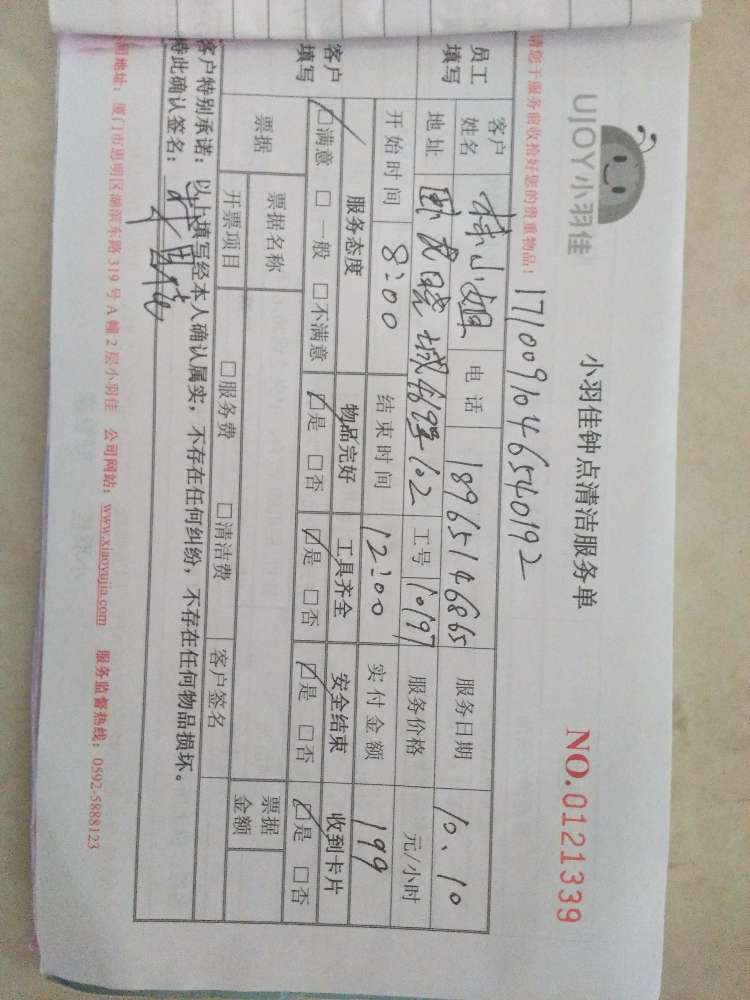 UJOY小羽佳
小羽佳钟点清洁服务单
NO.0121339
请您于服务前收拾好您的贵重物品！
17100910465 40192
员工填写
客户姓名 林小姐 电话 18965146865 服务日期 10、10
地址 卧龙晓城 102 工号 10197 服务价格 元/小时
开始时间 8:00 结束时间 12:00 实付金额 199
客户填写
服务态度 物品完好 工具齐全 安全结束 收到卡片
☑满意 □一般 □不满意 ☑是 □否 ☑是 □否 ☑是 □否 ☑是 □否
票据 票据名称 票据金额
开票项目 □服务费 □清洁费 客户签名
客户特别承诺：以上填写经本人确认属实，不存在任何纠纷，不存在任何物品损坏。
特此确认签名：
公司地址：厦门市思明区湖滨东路 319 号 A 幢 2 层小羽佳 公司网站：www.xiaoyujia.com 服务监督热线：0592-5888123